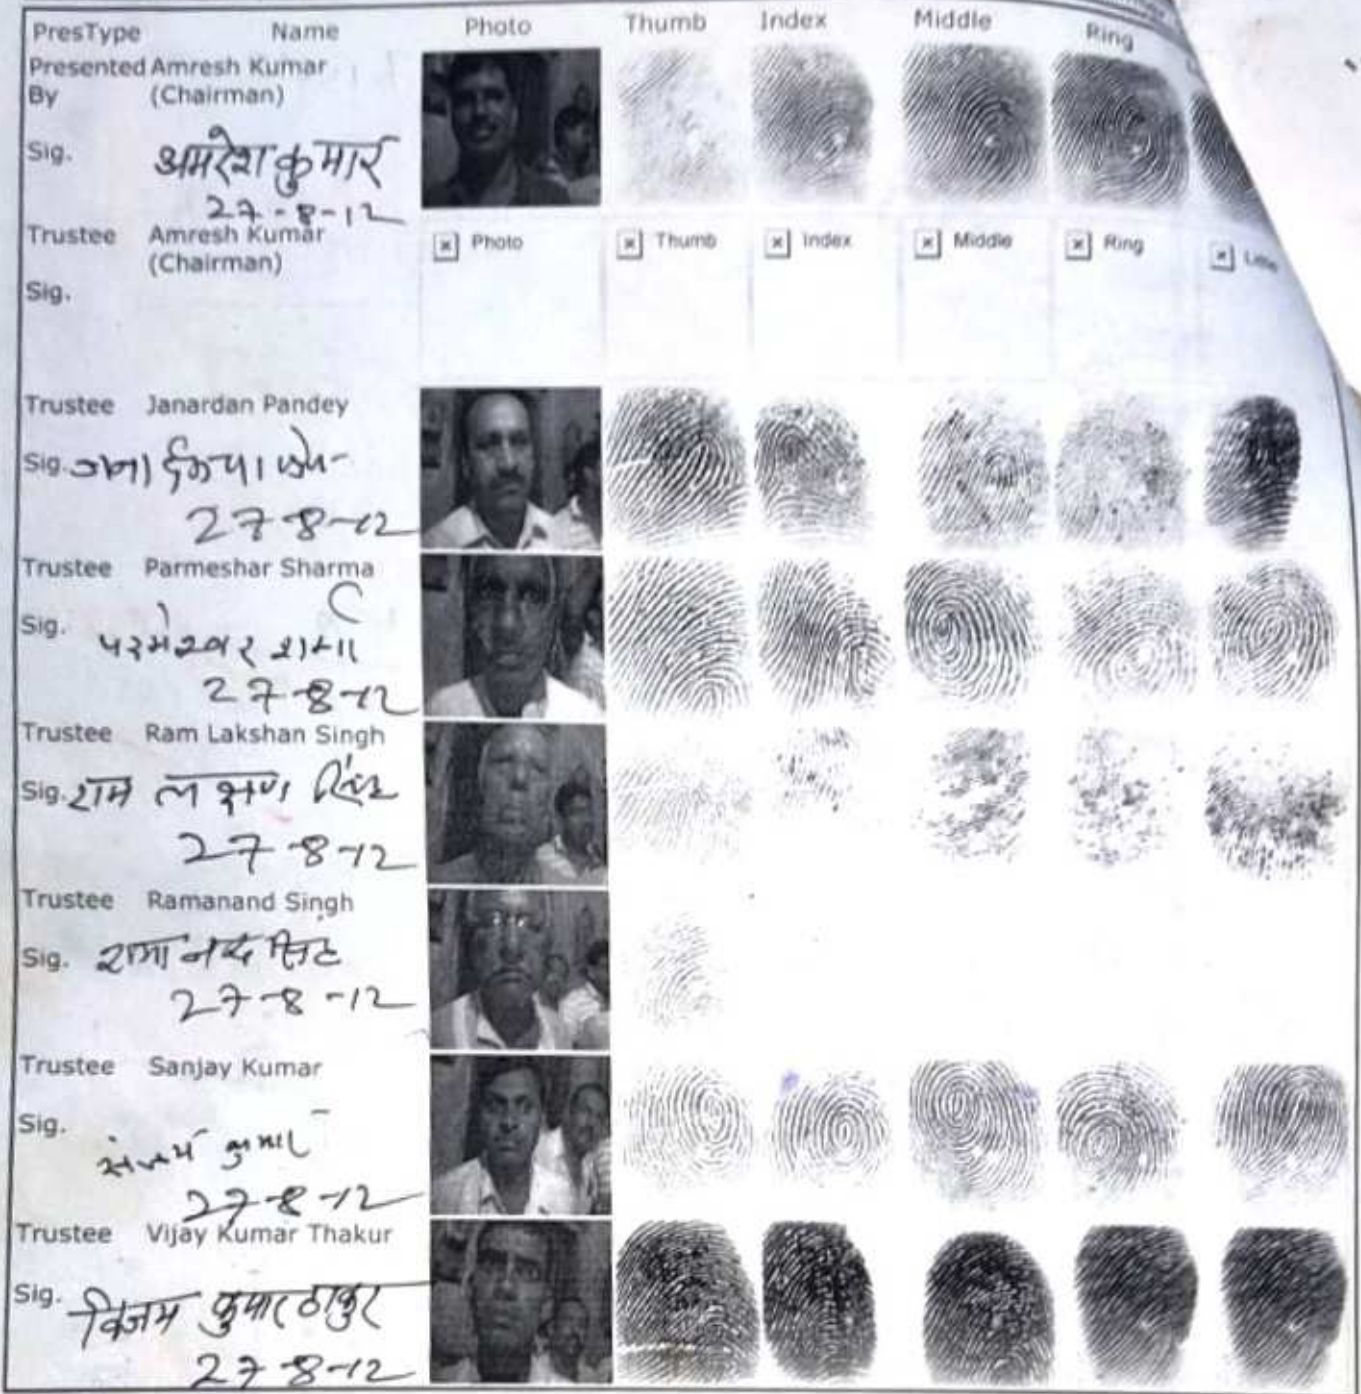 PresType Name Photo Thumb Index Middle Ring
Presented By Amresh Kumar (Chairman)
Sig. अमरेश कुमार
27-8-12
Trustee Amresh Kumar (Chairman) Photo Thumb Index Middle Ring Little
Sig.
Trustee Janardan Pandey
Sig.
27-8-12
Trustee Parmeshar Sharma
Sig. परमेश्वर शर्मा
27-8-12
Trustee Ram Lakshan Singh
Sig. राम लक्षण सिंह
27-8-12
Trustee Ramanand Singh
Sig. रामानन्द सिंह
27-8-12
Trustee Sanjay Kumar
Sig. संजय कुमार
27-8-12
Trustee Vijay Kumar Thakur
Sig. विजय कुमार ठाकुर
27-8-12